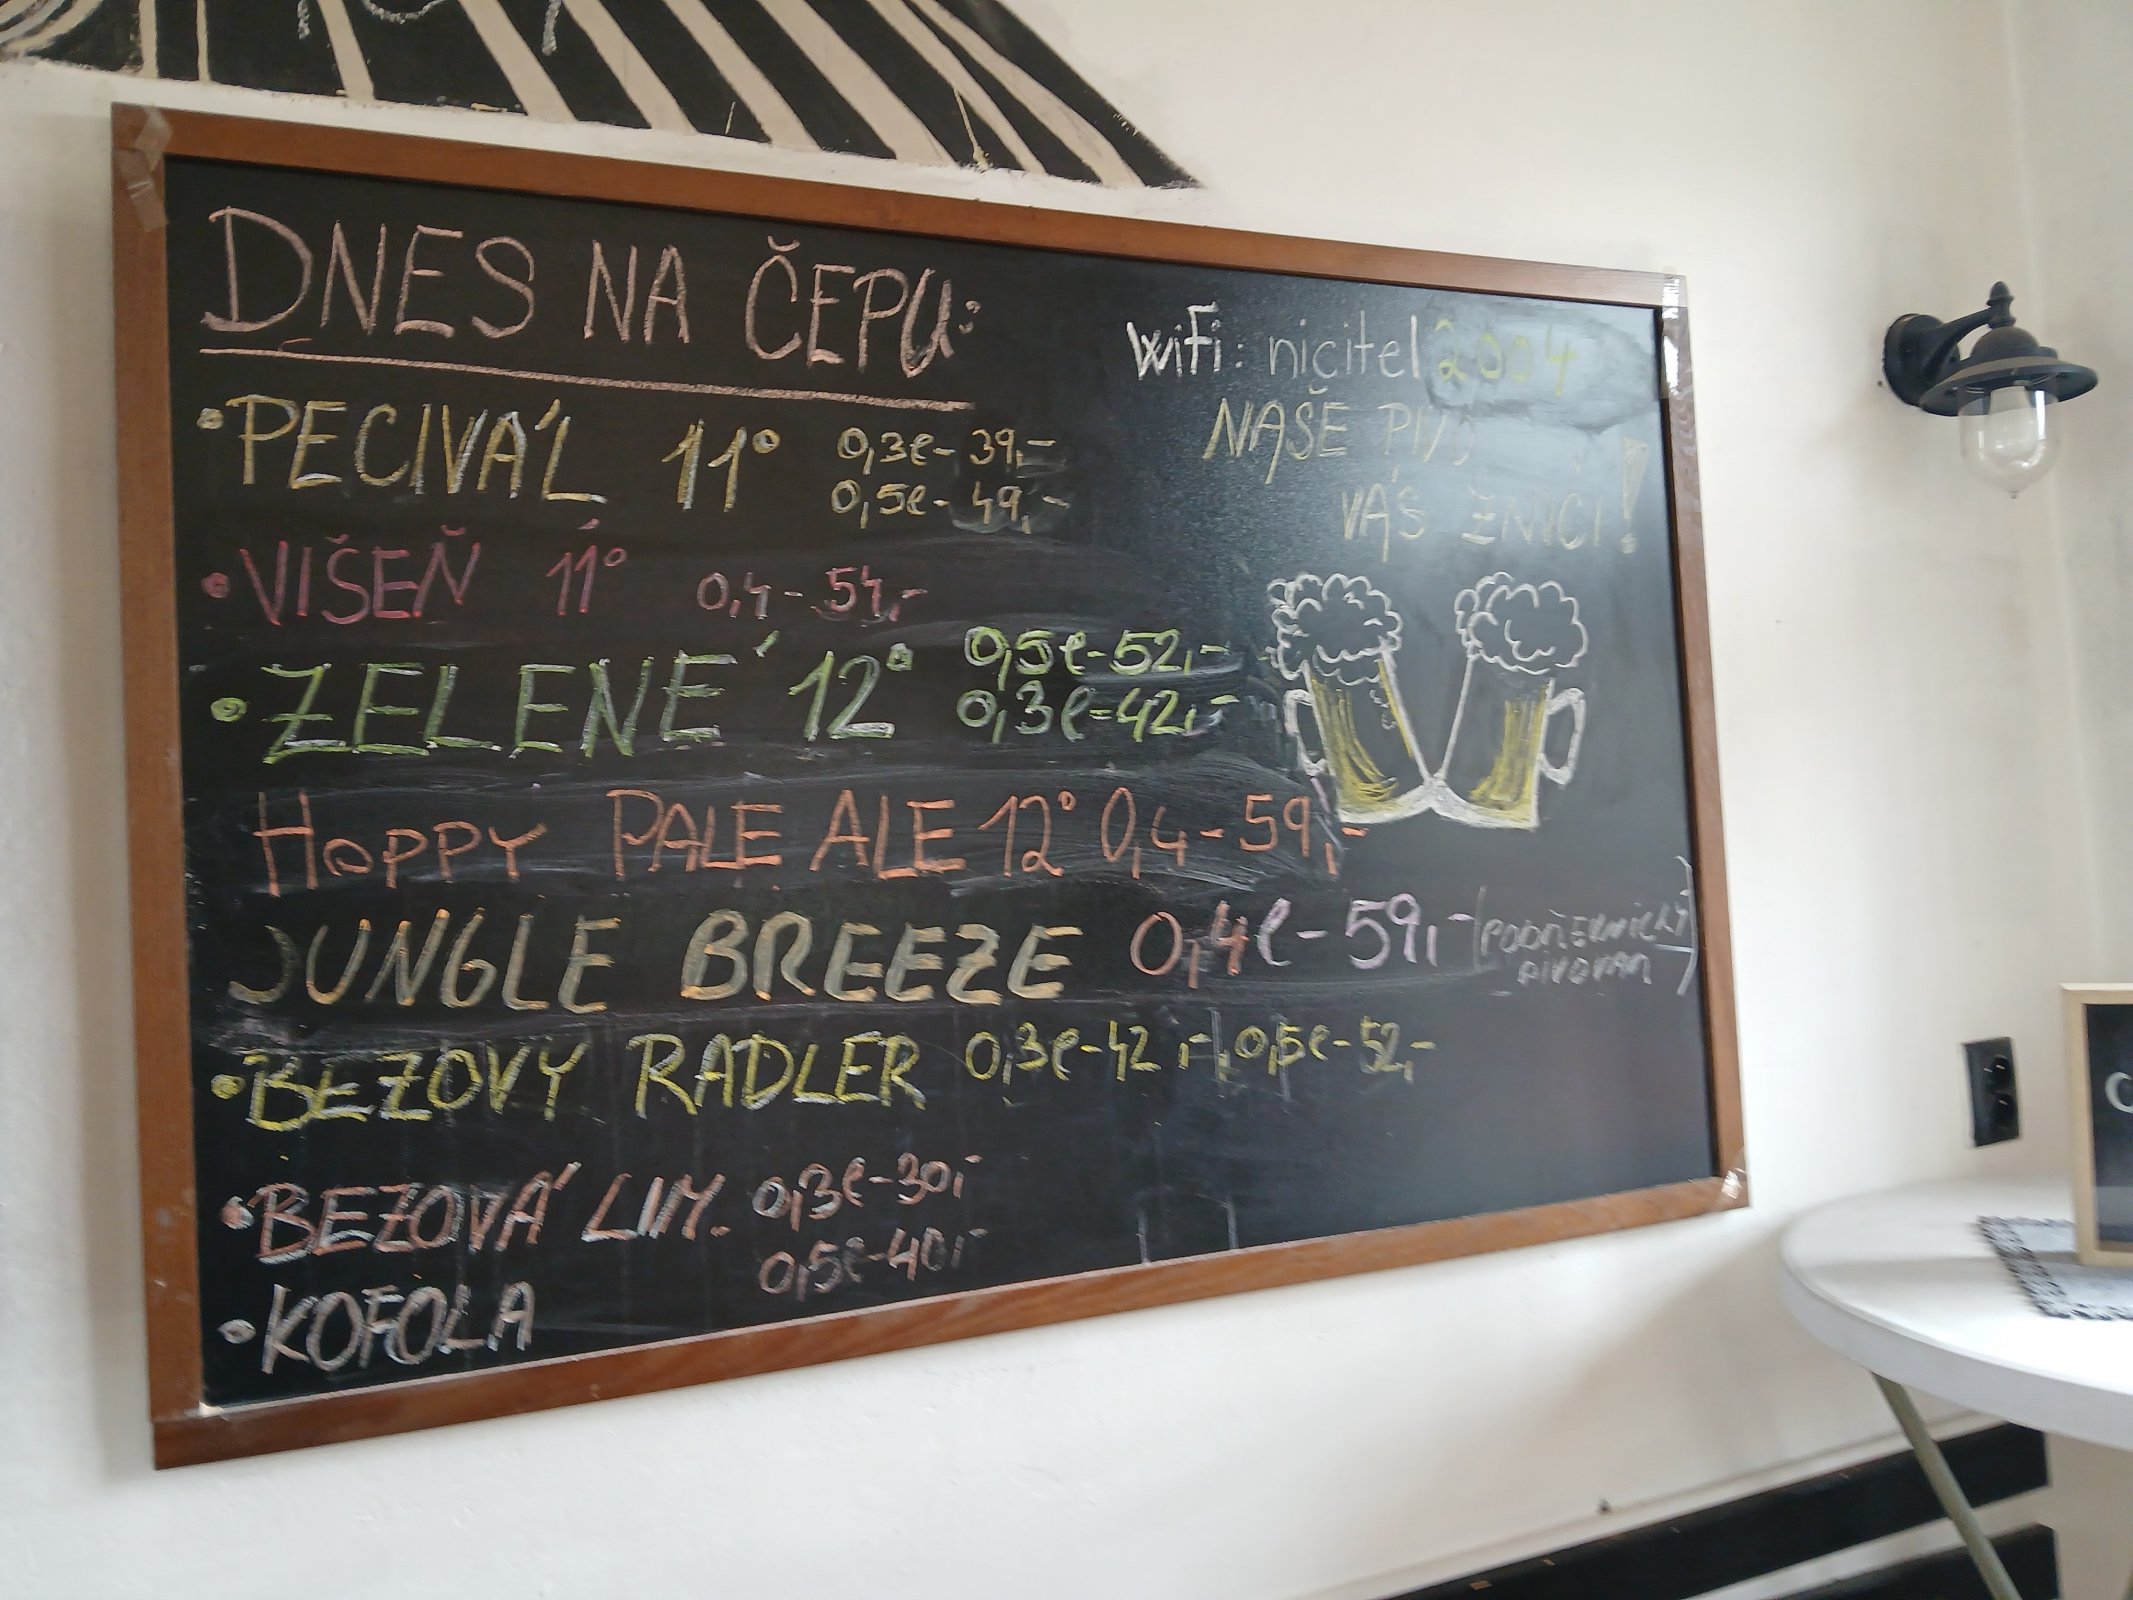 DNES NA ČEPU:
WiFi: ničitel 2004
NAŠE PIVO
VÁS ZNIČÍ!
• PECIVÁL 11° 0,3l - 39,-
0,5l - 49,-
• VIŠEŇ 11° 0,4 - 54,-
• ZELENÉ 12° 0,5l - 52,-
0,3l - 42,-
HOPPY PALE ALE 12° 0,4 - 59,-
JUNGLE BREEZE 0,4l - 59,-
pivovar)
• BEZOVÝ RADLER 0,3l - 42,-, 0,5l - 52,-
• BEZOVÁ LIM. 0,3l - 30,-
0,5l - 40,-
• KOFOLA